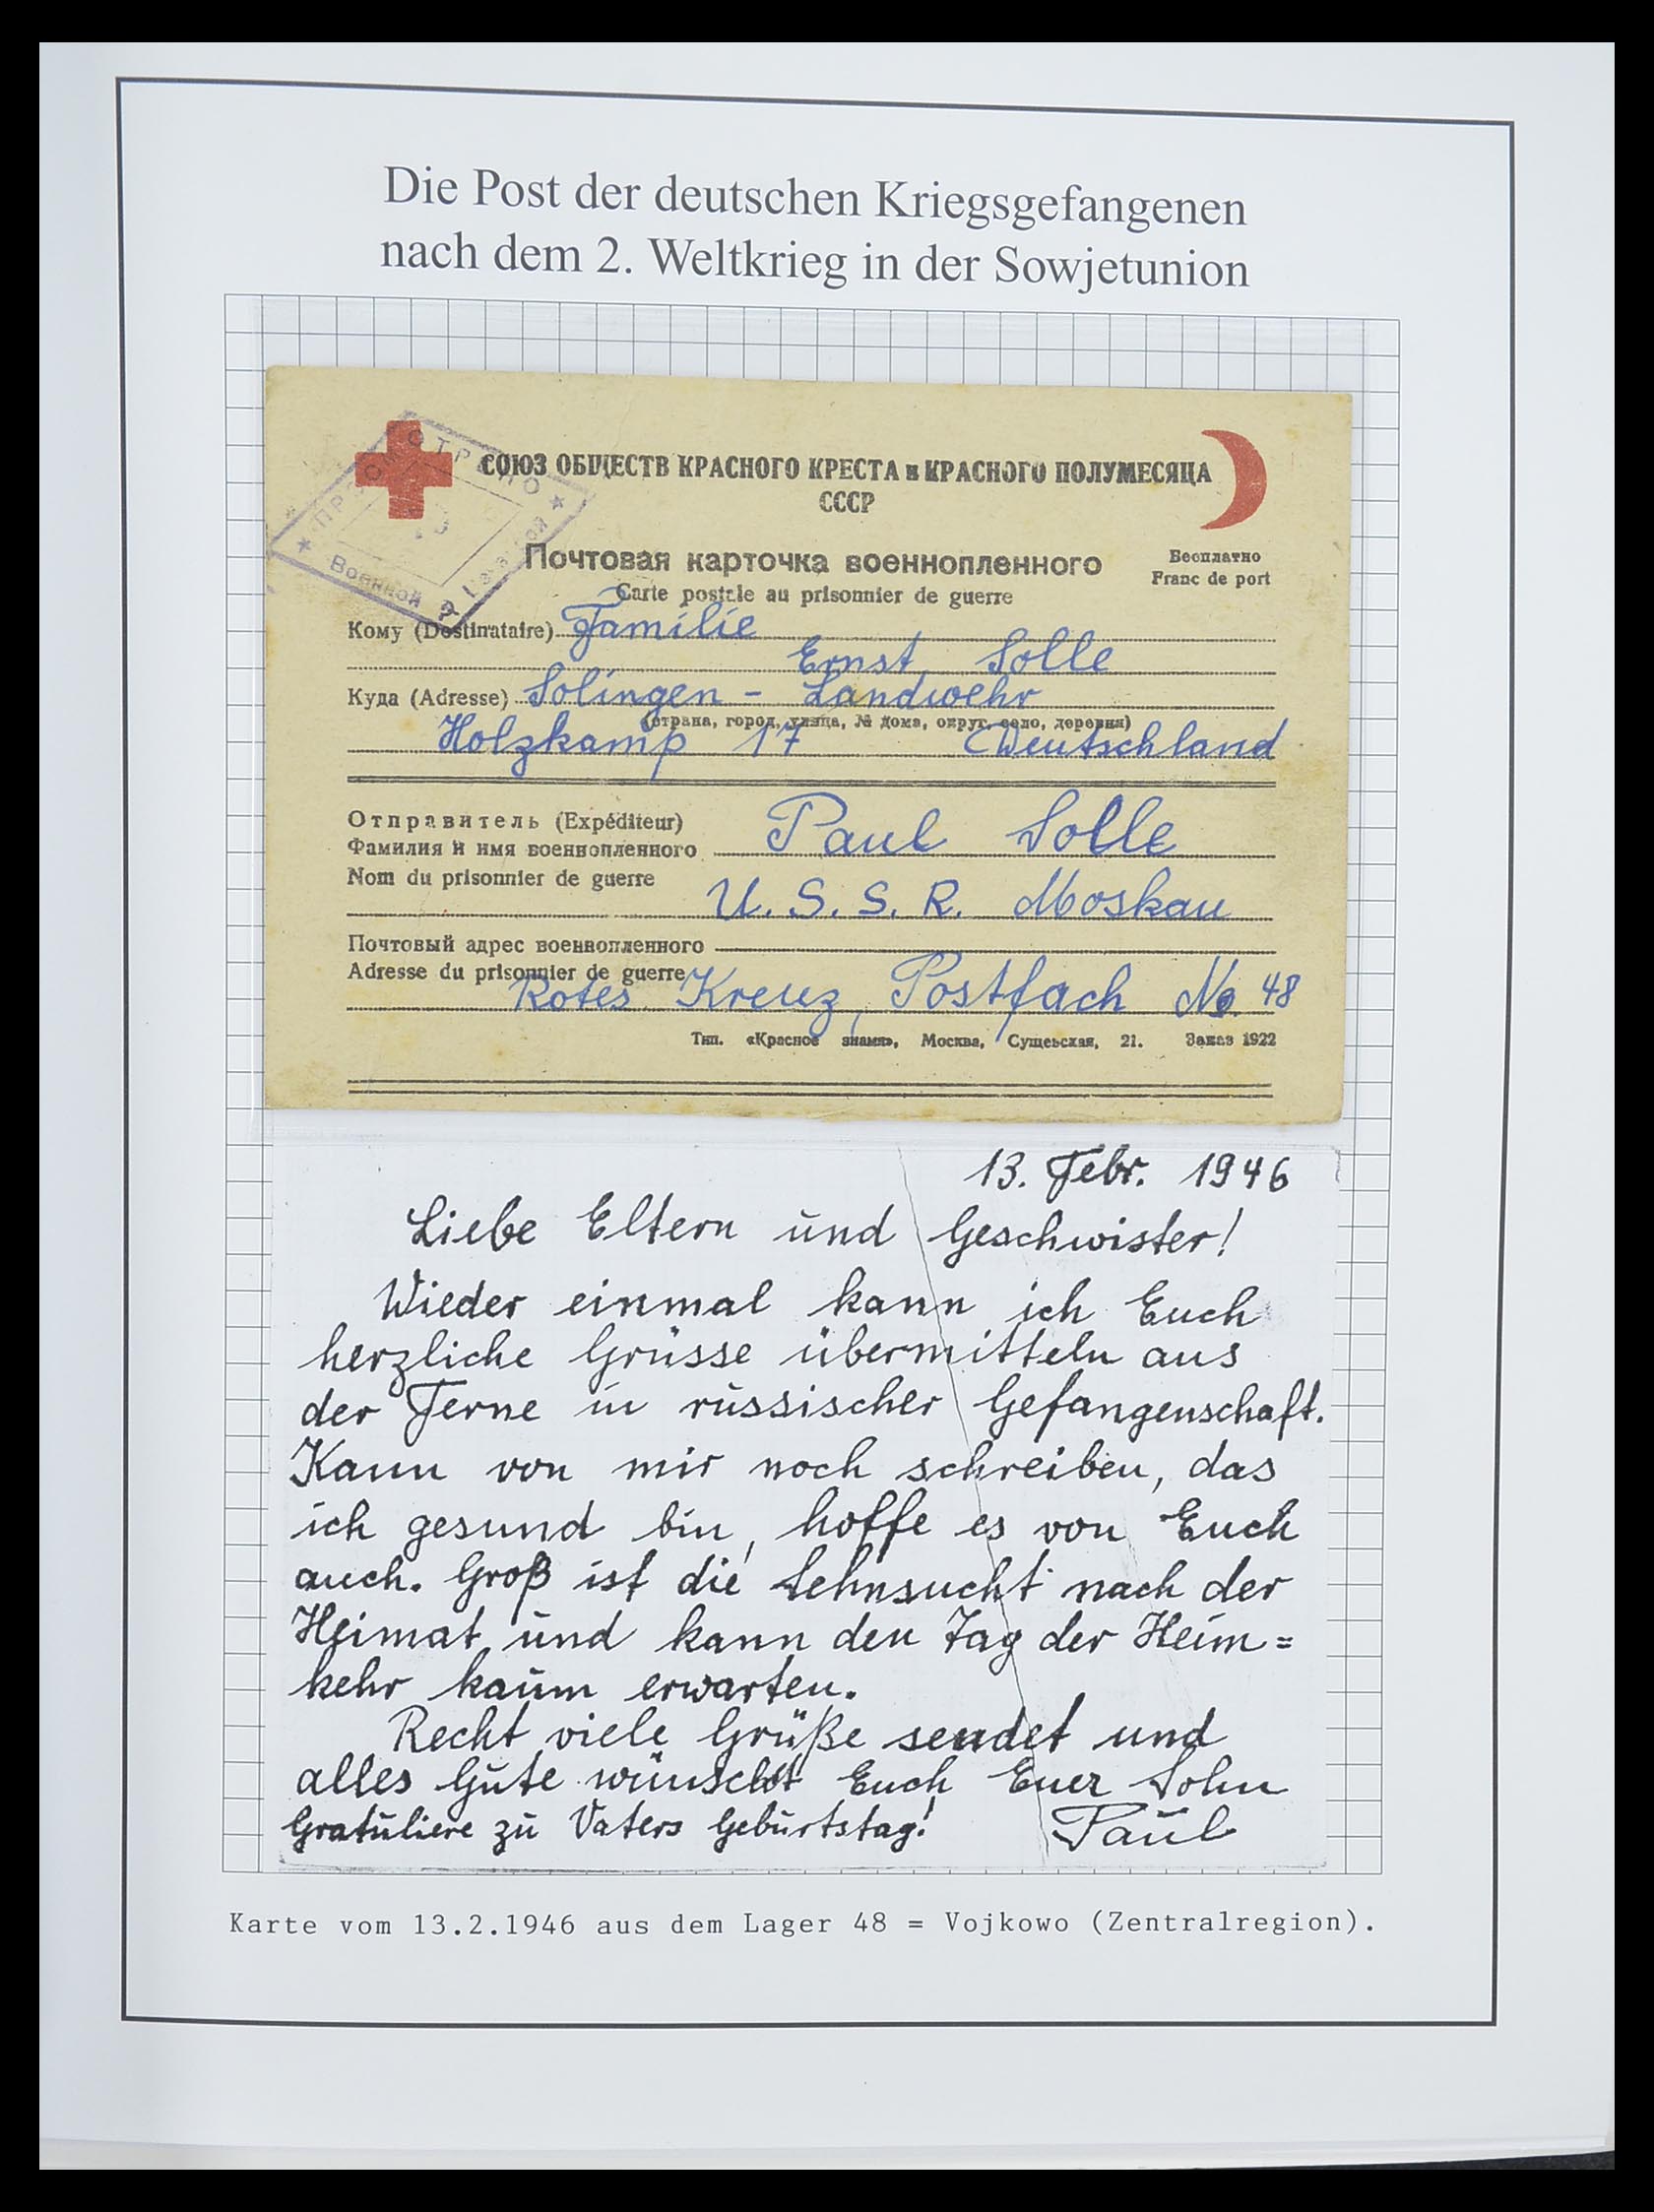 Die Post der deutschen Kriegsgefangenen
nach dem 2. Weltkrieg in der Sowjetunion
СОЮЗ ОБЩЕСТВ КРАСНОГО КРЕСТА и КРАСНОГО ПОЛУМЕСЯЦА
СССР
Почтовая карточка военнопленного
Бесплатно
Carte postale au prisonnier de guerre
Franc de port
Военной
Кому (Destinataire) Familie
Ernst Solle
Куда (Adresse) Solingen - Landwehr
(страна, город, улица, № дома, округ, село, деревня)
Holzkamp 17 Deutschland
Отправитель (Expéditeur)
Фамилия и имя военнопленного Paul Solle
Nom du prisonnier de guerre
U. S. S. R. Moskau
Почтовый адрес военнопленного
Adresse du prisonnier de guerre
Rotes Kreuz, Postfach No. 48
Тип. «Красное знамя», Москва, Сущевская, 21. Заказ 1922
13. Febr. 1946
Liebe Eltern und Geschwister!
Wieder einmal kann ich Euch
herzliche Grüsse übermitteln aus
der Ferne in russischer Gefangenschaft.
Kann von mir noch schreiben, das
ich gesund bin, hoffe es von Euch
auch. Groß ist die Sehnsucht nach der
Heimat und kann den Tag der Heim=
kehr kaum erwarten.
Recht viele Grüße sendet und
alles Gute wünscht Euch Euer Sohn
Gratuliere zu Vaters Geburtstag! Paul
Karte vom 13.2.1946 aus dem Lager 48 = Vojkowo (Zentralregion).